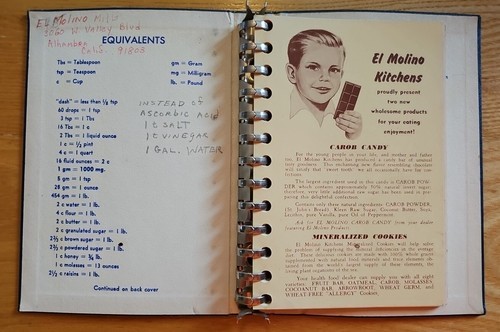 El Molino Mills
2060 W. Valley Blvd
Alhambra
Calif. 91803
EQUIVALENTS
Tbs = Tablespoon
tsp = Teaspoon
c = Cup
gm = Gram
mg = Milligram
lb. = Pound
"dash" = less than ⅛ tsp
60 drops = 1 tsp
3 tsp = 1 Tbs
16 Tbs = 1 c
2 Tbs = 1 liquid ounce
1 c = ½ pint
4 c = 1 quart
16 fluid ounces = 2 c
1 gm = 1000 mg.
5 gm = 1 tsp
28 gm = 1 ounce
454 gm = 1 lb.
2 c water = 1 lb.
4 c flour = 1 lb.
2 c butter = 1 lb.
2 c granulated sugar = 1 lb.
2⅔ c brown sugar = 1 lb.
2⅔ c powdered sugar = 1 lb.
1 c honey = ¾ lb.
1 c molasses = 13 ounces
2½ c raisins = 1 lb.
Continued on back cover
INSTEAD OF
ASCORBIC ACID
1 c SALT
1 c VINEGAR
1 GAL. WATER
El Molino
Kitchens
proudly present
two new
wholesome products
for your eating
enjoyment!
CAROB CANDY
For the young people in your life, and mother and father
too, El Molino Kitchens has produced a candy bar of unusual
taste goodness. This enchanting new flavor
satisfy that "sweet tooth" we all occasionally have for con-
fections.
The largest ingredient used in this candy is CAROB POW-
DER which contains approximately
therefore, very little additional raw sugar has been used in pre-
paring this delightful confection.
Candy only these natural ingredients: CAROB POWDER,
(St. John's Bread), Kleer Raw Sugar, Coconut Butter, Soya
Lecithin, pure Vanilla, pure Oil of Peppermint.
Ask for EL MOLINO CAROB CANDY from your dealer
featuring El Molino Products
MINERALIZED COOKIES
El Molino Kitchens Mineralized Cookies will help solve
the problem of supplying the mineral deficiencies in the average
diet. These delicious cookies are made with 100% whole grains
supplemented with natural food minerals and trace elements de-
rived from the world's largest supply of these elements, the
living plant organisms of the sea.
Your health food dealer can supply you with all eight
varieties: FRUIT BAR, OATMEAL, CAROB, MOLASSES,
COCOANUT BAR, ARROWROOT, WHEAT GERM, and
WHEAT-FREE "ALLERGY" Cookies.